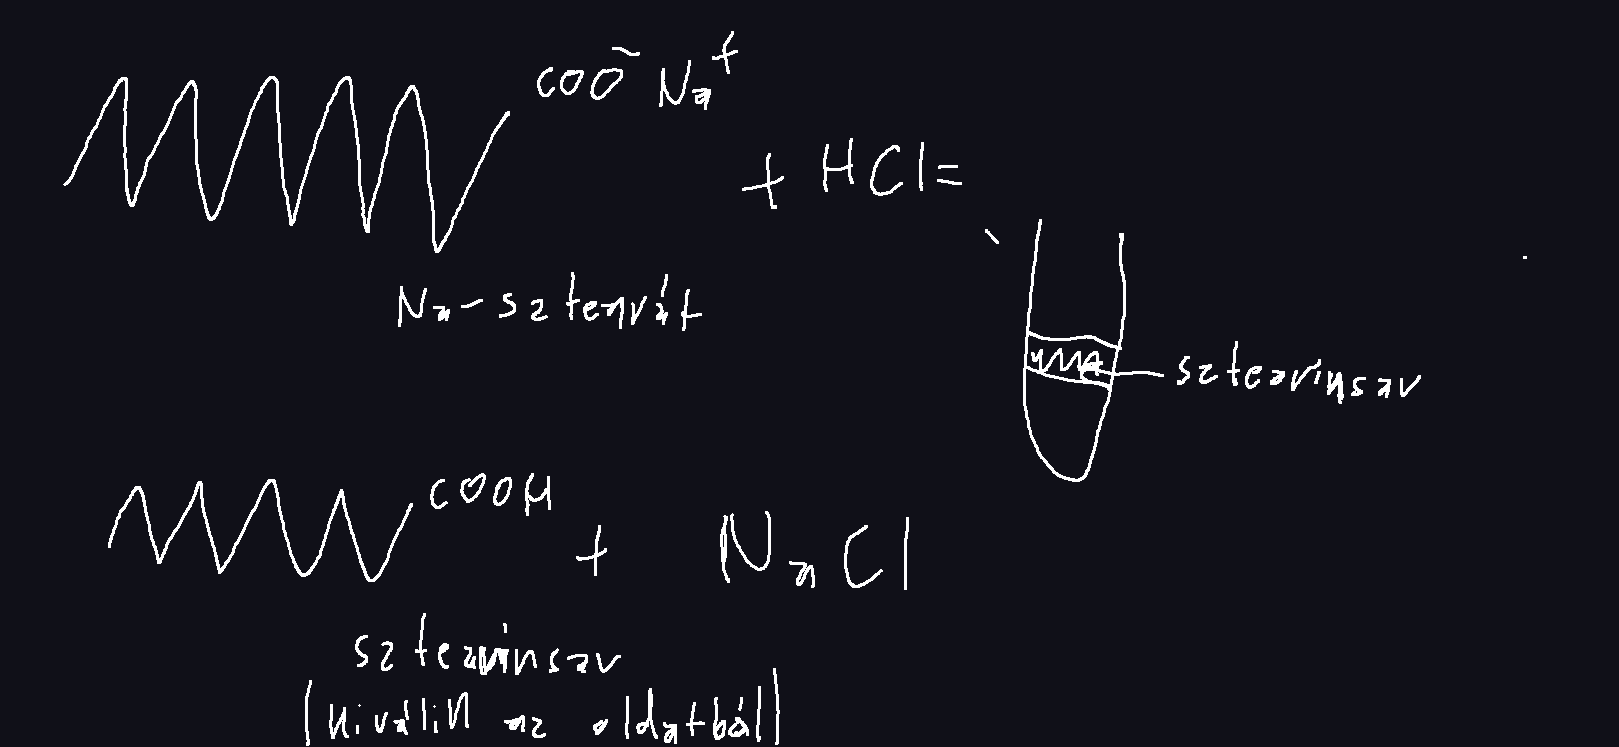 COO⁻ Na⁺
+ HCl =
Na-sztearát
sztearinsav
COOH
+ NaCl
sztearinsav
(kiválik az oldatból)